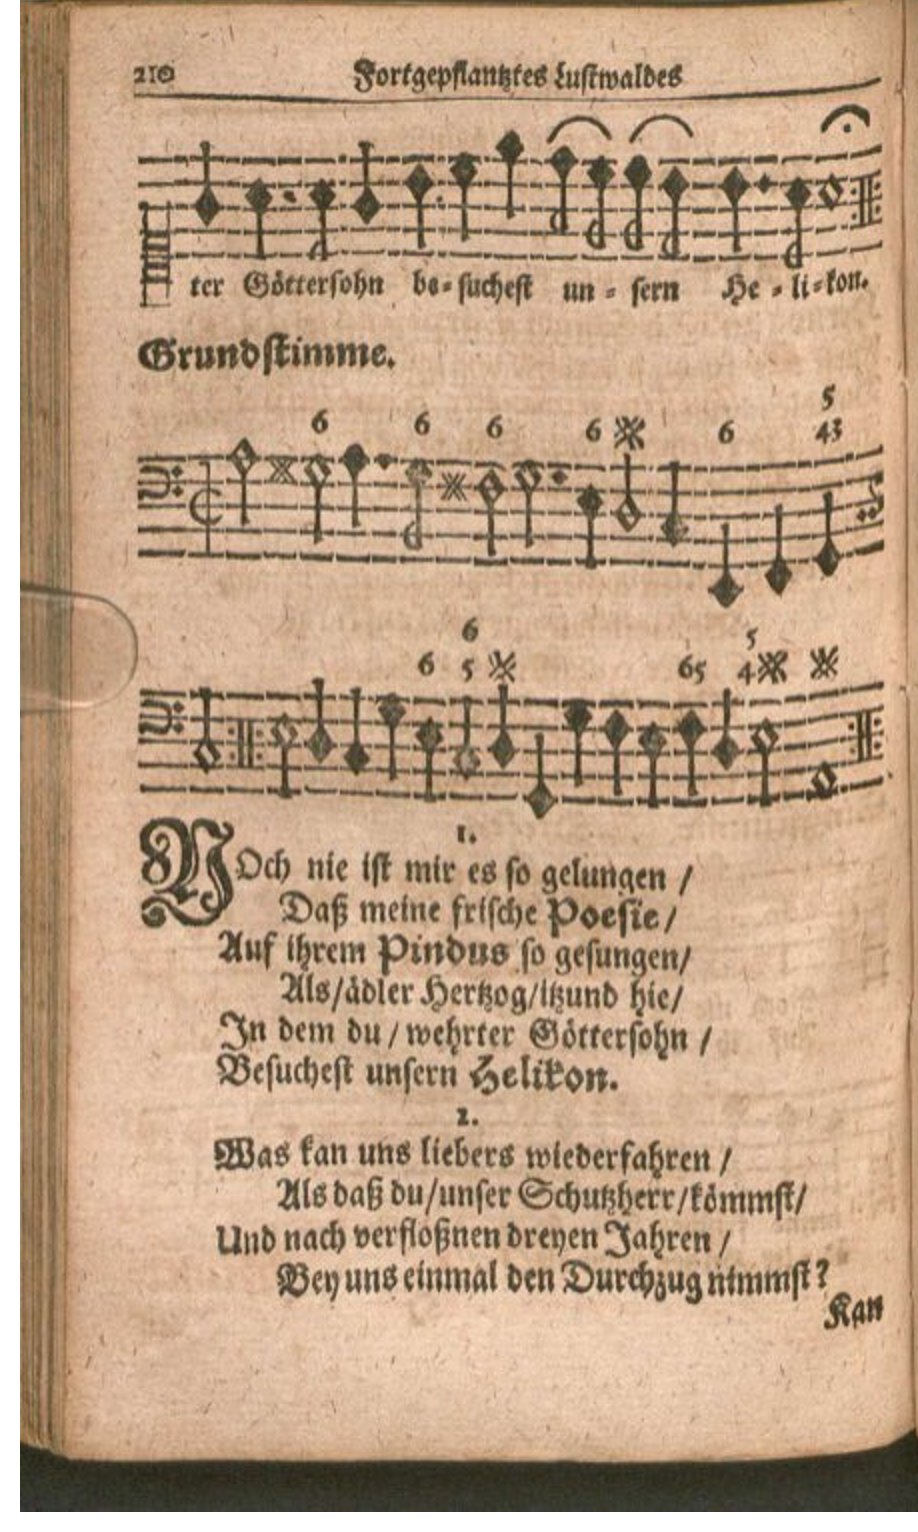 210 Fortgepflantztes Lustwaldes
ter Göttersohn be-suchest un-sern He-li-kon.
Grundstimme.
5
6 6 6 6 6 43
6 5
6 5 65 4
1.
NOch nie ist mir es so gelungen /
Daß meine frische Poesie /
Auf ihrem Pindus so gesungen/
Als/ädler Hertzog/itzund hie/
In dem du / wehrter Göttersohn /
Besuchest unsern Helikon.
2.
Was kan uns liebers wiederfahren /
Als daß du/unser Schutzherr/kömmst/
Und nach verfloßnen dreyen Jahren /
Bey uns einmal den Durchzug nimmst?
Kan